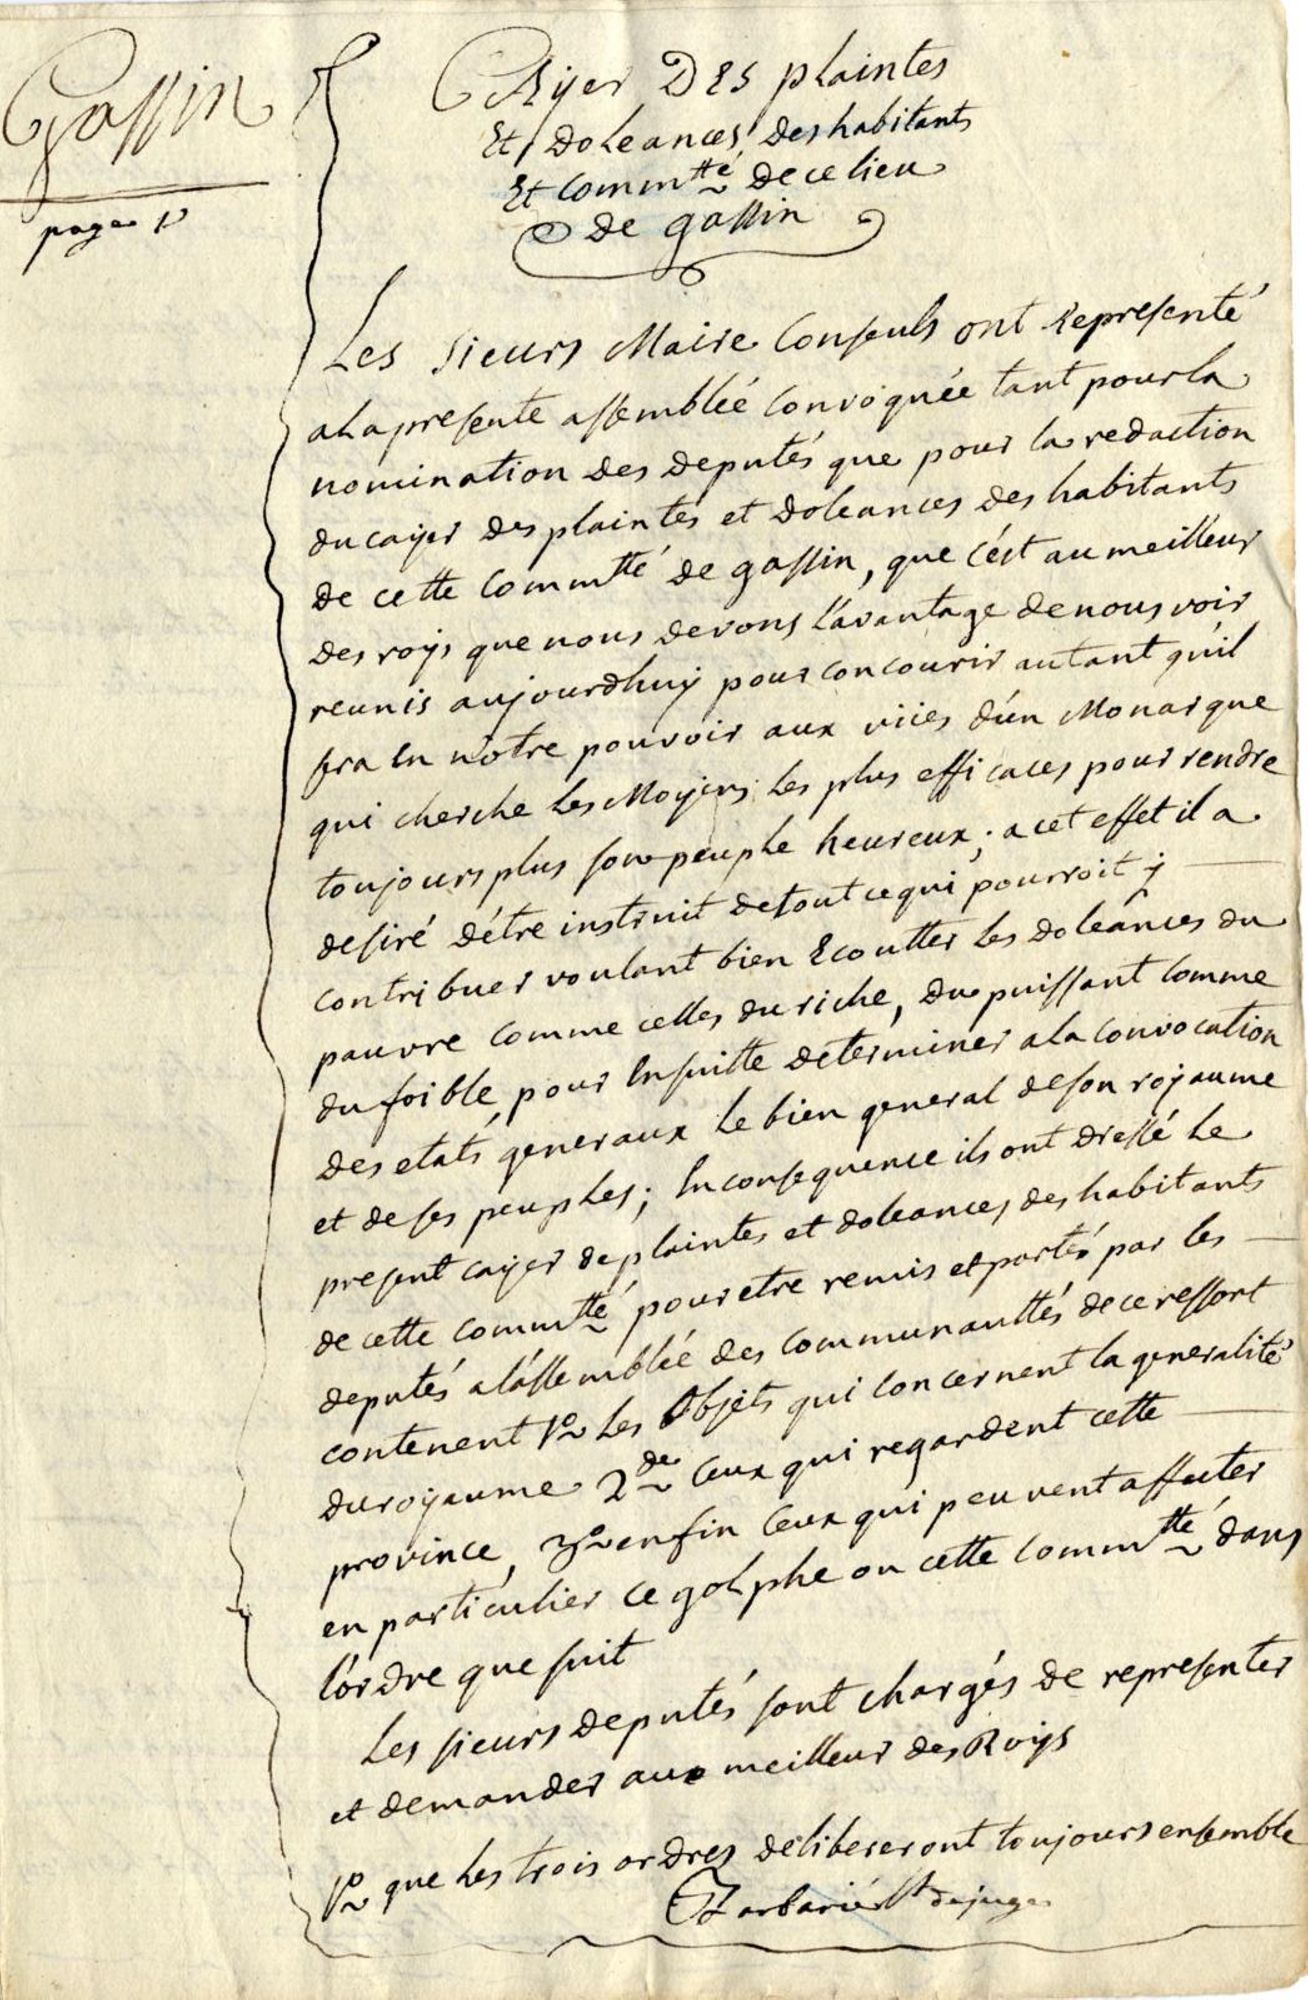 Gassin
page 1º
Cayer Des plaintes
Et doleances des habitants
Et commtté de ce lieu
de gassin
Les sieurs Maire Consuls ont representé
a La presente assembléé convoquée tant pour la
nomination des deputés que pour la redaction
du cayer des plaintes et doleances des habitants
de cette commtté de gassin, que c'ést au meilleur
des roys que nous devons l'avantage de nous voir
reunis aujourdhuy pour concourir autant qu'il
sera En notre pouvoir aux viies d'ún Monarque
qui cherche Les Moyens Les plus efficaces pour rendre
toujours plus son peuple heureux; a cet effet il a
desiré d'étre instruit de tout ce qui pourroit y
contribuer voulant bien Ecoutter Les doleances du
pauvre comme celles du riche, du puissant Comme
du foible, pour Ensuitte determiner a la convocation
des etats generaux Le bien general de son royaume
et de ses peuples; En consequence ils ont dressé Le
present cayer de plaintes et doleances des habitants
de cette commtté pour etre remis et portés par les
deputés a l'ássembléé des communauttés de ce ressort
contenent 1º Les Objets qui concernent la generalité
du royaume 2de Ceux qui regardent cette
province, 3º enfin Ceux qui peuvent affecter
en particulier ce golphe ou cette commtté dans
l'órdre que suit
Les sieurs deputés sont chargés de representer
et demander aux meilleur des Roys
1º que Les trois ordres délibereront toujours ensemble
Barbarié Lt de juge